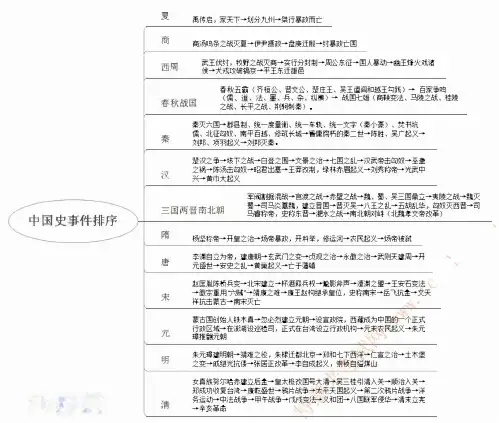 中国史事件排序
夏
禹传启，家天下→划分九州→桀行暴政而亡
商
商汤鸣条之战灭夏→伊尹摄政→盘庚迁殷→纣暴政亡国
西周
武王伐纣，牧野之战灭商→实行分封制→周公东征→国人暴动→幽王烽火戏诸
侯→犬戎攻破镐京→平王东迁雒邑
春秋战国
春秋五霸（齐桓公、晋文公、楚庄王、吴王阖闾和越王勾践）→百家争鸣
（儒、道、法、墨、兵、杂、纵横）→战国七雄（商鞅变法、马陵之战、桂陵
之战、长平之战、荆轲刺秦）
秦
秦灭六国→郡县制，统一度量衡、统一车轨、统一文字（秦小篆）、焚书坑
儒、北征匈奴、南平百越、修筑长城→
的秦二世→陈胜、吴广起义→
刘邦、项羽起义→刘邦灭秦。
汉
楚汉之争→垓下之战→白登之围→文景之治→七国之乱→汉武帝击匈奴→
之祸→陈汤击匈奴→昭君出塞→王莽改制，绿林赤眉起义→刘秀称帝→光武中
兴→黄巾大起义
三国两晋南北朝
军阀割据混战→官渡之战→赤壁之战→魏、蜀、吴三国鼎立→夷陵之战→魏灭
蜀→司马炎篡魏，建立晋国→晋灭吴→八王之乱→五胡乱华，匈奴灭西晋→司
马睿称帝，史称东晋→淝水之战→南北朝对峙（北魏孝文帝改革）
隋
杨坚称帝→开皇之治→炀帝暴政，开科举，修运河→农民起义→炀帝被弑
唐
李渊自立为帝，建唐朝→玄武门之变→贞观之治→永徽之治→武则天建周→开
元盛世→安史之乱→黄巢起义→亡于藩镇
宋
赵匡胤陈桥兵变→北宋建立→杯酒释兵权→
→澶渊之盟→王安石变法
→
→靖康之难→康王赵构继承皇位，史称南宋→岳飞抗金→文天
祥抗击蒙古→南宋灭亡
元
蒙古国创始人铁木真→忽必烈建立元朝→设宣政院，西藏成为中国的一个正式
行政区域→在澎湖设巡检司，正式在台湾设立行政机构→元末农民起义→朱元
璋推翻元朝
明
朱元璋建明朝→靖难之役，朱棣迁都北京→郑和七下西洋→仁宣之治→土木堡
之变→戚继光抗倭→张居正改革→李自成起义，崇祯自缢煤山
清
女真族努尔哈赤建立后金→皇太极改国号大清→吴三桂引清入关→顺治入关→
郑成功收复台湾→康乾盛世→鸦片战争→太平天国起义→第二次鸦片战争→洋
务运动→中法战争→甲午战争→戊戌变法→义和团→八国联军侵华→清末立宪
→辛亥革命